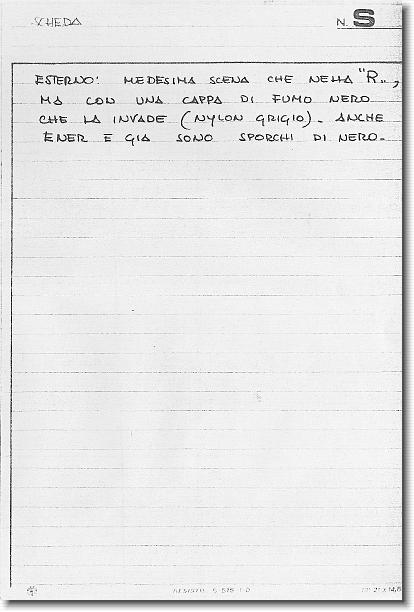 SCHEDA N. S
ESTERNO: MEDESIMA SCENA CHE NELLA "R",
MA CON UNA CAPPA DI FUMO NERO
CHE LA INVADE (NYLON GRIGIO). ANCHE
ENER E GIA SONO SPORCHI DI NERO.